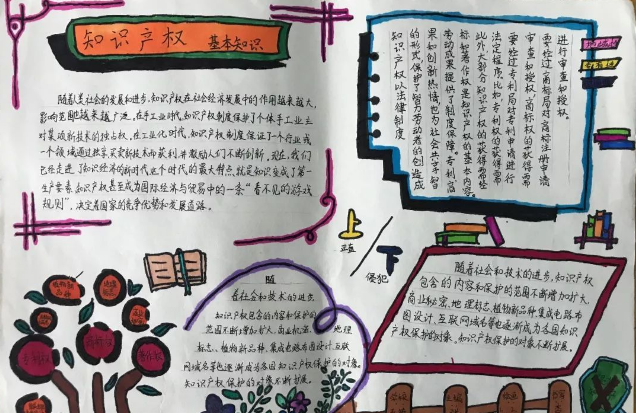 知识产权 基本知识
随着人类社会的发展和进步,知识产权在社会经济发展中的作用越来越大,
影响范围也越来越广泛。在手工业时代,知识产权制度保护了个体手工业主
对某项新技术的独占权,在工业化时代,知识产权制度保证了一个行业或
一个领域通过独享、买卖新技术而获利,并激励人们不断创新。现在,我们
已经走进了知识经济的新时代,这个时代的最大特点就是知识变成了第一
生产要素,知识产权甚至成为国际经济与贸易中的一条“看不见的游戏
规则”,决定着国家的竞争优势和发展道路。
知识产权以法律制度
的形式保护了智力劳动者的创造成
果和创新热情,也为社会共享智
力劳动成果提供了制度保障。专利、商
标和著作权是知识产权的基本内容。
此外,大部分知识产权的获得需经
法定程序,比如专利权的获得需
要经过专利局对专利申请进行
审查和授权,商标权的获得需
要经过商标局对商标注册申请
进行审查和授权。
上
正直
下
侵犯
随
着社会和技术的进步,
知识产权包含的内容和保护的
范围不断增加扩大,商业秘密、地理
标志、植物新品种、集成电路布图设计、互联
网域名等也逐渐成为各国知识产权保护的对象。
知识产权保护的对象不断扩展。
随着社会和技术的进步,知识产权
包含的内容和保护的范围不断增加扩大,
商业秘密、地理标志、植物新品种、集成电路布
图设计、互联网域名等也逐渐成为各国知识
产权保护的对象、知识产权保护的对象不断扩展。